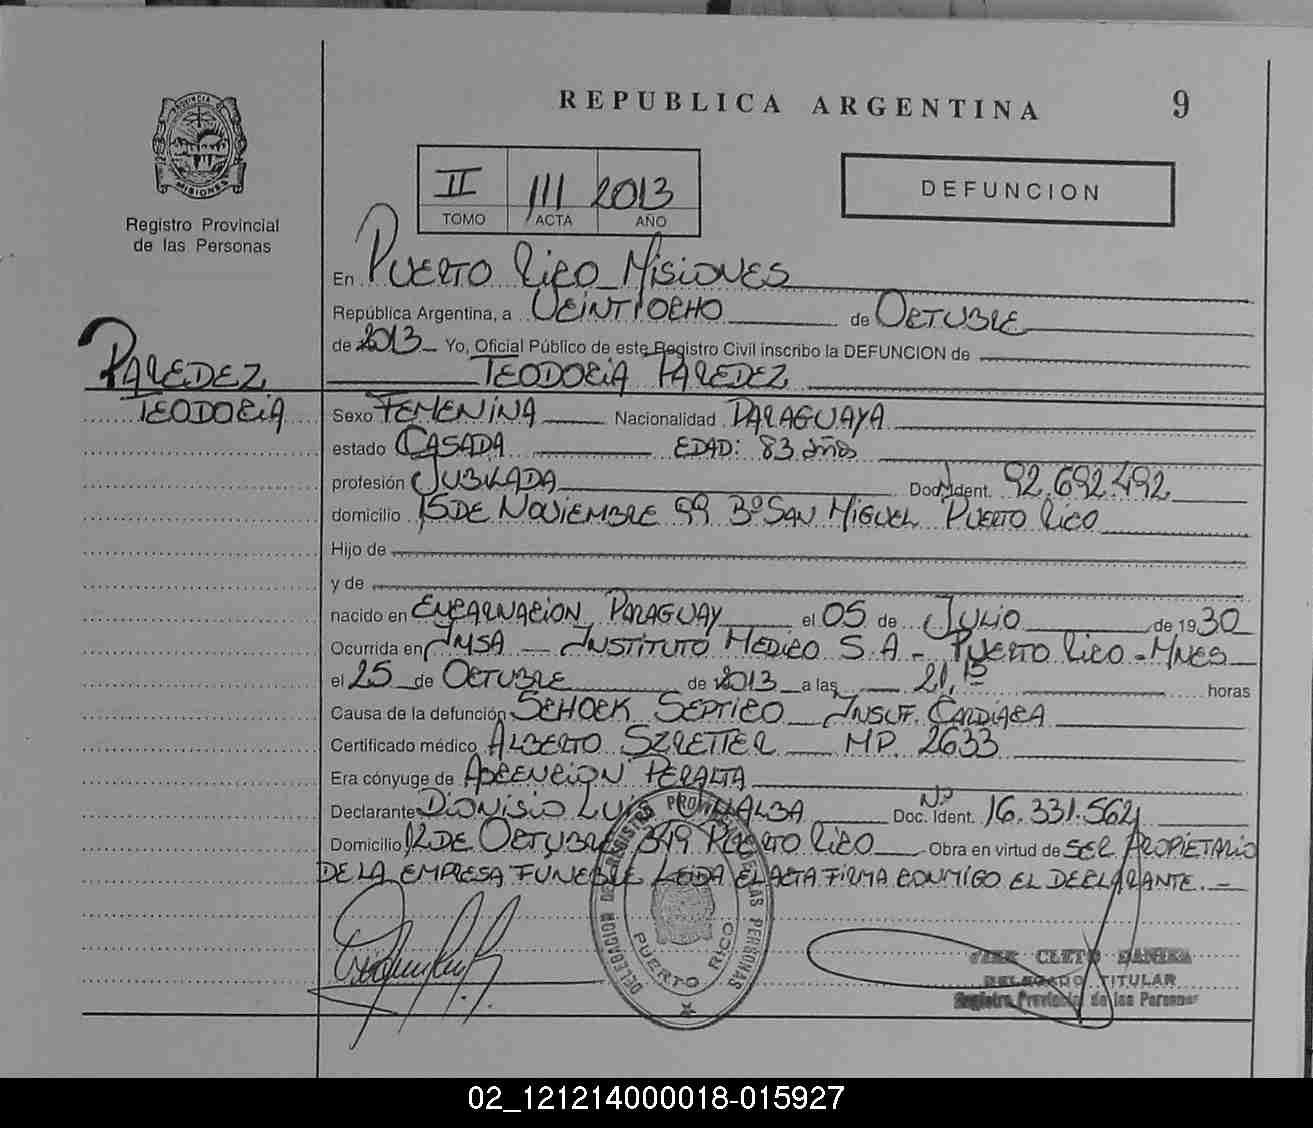 REPUBLICA ARGENTINA 9
PROVINCIA DE MISIONES
Registro Provincial
de las Personas
II 111 2013
TOMO ACTA AÑO
DEFUNCION
En Puerto Rico Misiones
República Argentina, a Veintiocho de Octubre
de 2013 Yo, Oficial Público de este Registro Civil inscribo la DEFUNCION de
Teodocia Paredez
Paredez
Teodocia
Sexo Femenina Nacionalidad Paraguaya
estado Casada EDAD: 83 años
profesión Jubilada Doc. Ident. 92.692.492
domicilio 15 de Noviembre 99 Bº San Miguel Puerto Rico
Hijo de
y de
nacido en Encarnacion Paraguay el 05 de Julio de 1930
Ocurrida en IMSA - Instituto Medico S.A - Puerto Rico - Mnes
el 25 de Octubre de 2013 a las 21,15 horas
Causa de la defunción Schock Septico Insuf. Cardiaca
Certificado médico Alberto Szretter MP. 2633
Era cónyuge de Ascencion Peralta
Declarante Dionisio Luis Doc. Ident. Nº 16.331.562
Domicilio 12 de Octubre 349 Puerto Rico Obra en virtud de ser propietario
de la empresa funebre Leida el acta firma conmigo el declarante.-
DELEGACION DE REGISTRO PROVINCIAL DE LAS PERSONAS
PUERTO RICO
CLETO DANIEL
DELEGADO TITULAR
Registro Provincial de las Personas
02_121214000018-015927